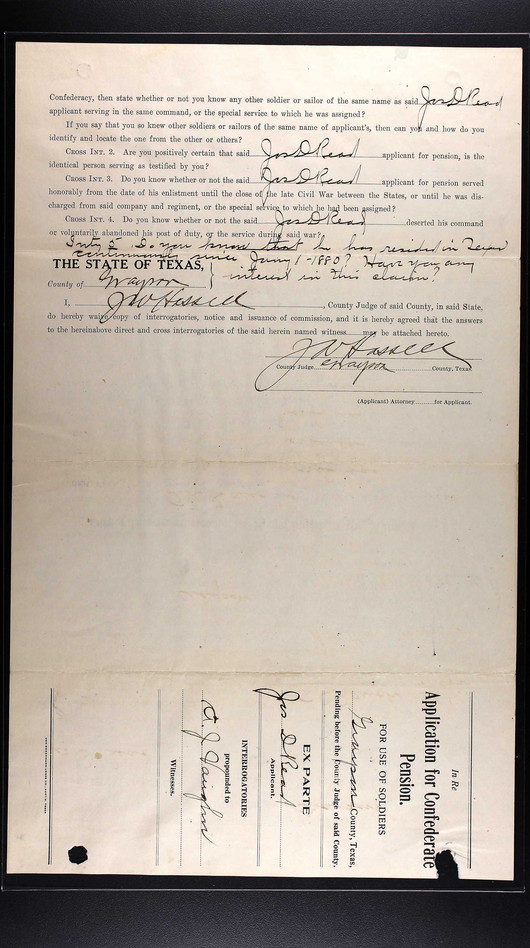 Confederacy, then state whether or not you know any other soldier or sailor of the same name as said Jas D Read
applicant serving in the same command, or the special service to which he was assigned?
If you say that you so knew other soldiers or sailors of the same name of applicant's, then can you and how do you
identify and locate the one from the other or others?
Cross Int. 2. Are you positively certain that said Jas D Read applicant for pension, is the
identical person serving as testified by you?
Cross Int. 3. Do you know whether or not the said Jas D Read applicant for pension served
honorably from the date of his enlistment until the close of the late Civil War between the States, or until he was dis-
charged from said company and regiment, or the special service to which he had been assigned?
Cross Int. 4. Do you know whether or not the said Jas D Read deserted his command
or voluntarily abandoned his post of duty, or the service during said war?
Inty 5 Do you know that he has resided in Texas
continuously since Jany 1-1880? Have you any
interest in this claim?
THE STATE OF TEXAS,
County of Grayson
I, J W Hassell, County Judge of said County, in said State,
do hereby waive copy of interrogatories, notice and issuance of commission, and it is hereby agreed that the answers
to the hereinabove direct and cross interrogatories of the said herein named witness may be attached hereto.
J W Hassell
County Judge Grayson County, Texas
(Applicant) Attorney for Applicant.
In Re
Application for Confederate
Pension.
FOR USE OF SOLDIERS
Grayson County, Texas,
Pending before the County Judge of said County.
EX PARTE
Jas D Read
Applicant.
INTERROGATORIES
propounded to
A. J. Vaughn
Witnesses.